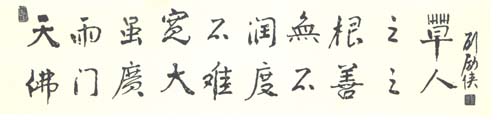 天雨虽宽不润無根之草
佛门廣大难度不善之人